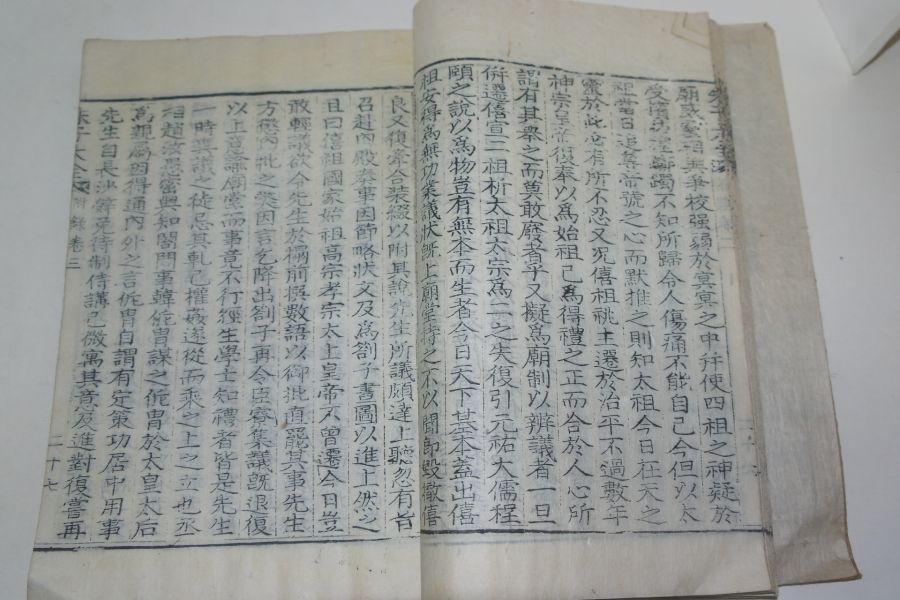 廟
受
祖當日追尊帝號之心而默推之則知太祖今日在天之
靈於此必有所不忍又况僖祖祧主遷於治平不過數年
神宗皇帝復奉以爲始祖已爲得禮之正而合於人心所
謂有其舉之而莫敢廢者乎又擬爲廟制以辨議者一旦
併遷僖宣二祖析太祖太宗爲二之失復引元祐大儒程
頤之說以爲物豈有無本而生者今日天下基本盖出僖
祖安得爲無功業議狀旣上廟堂持之不以聞卽毁撤僖
良又復牽合裝綴以附其說先生所議頗達上聽忽有旨
召赴內殿奏事因節略狀文及爲劄子畫圖以進上然之
且曰僖祖國家始祖高宗孝宗太上皇帝不曾遷今日豈
敢輕議欲令先生於榻前撰數語以御批直罷其事先生
方懲內批之獘因言乞降出劄子再令臣寮集議旣退復
以上意諭廟堂而事竟不行經生學士知禮者皆是先生
一時異議之徒忌其軋己權姦遂從而乘之上之立也丞
相趙汝愚密與知閤門事韓侂冑謀之侂冑於太皇太后
爲親屬因得通內外之言侂冑自謂有定策功居中用事
先生自長沙辭免待制侍講已微寓其意及進對復嘗再
朱子大全附錄卷三
二十七